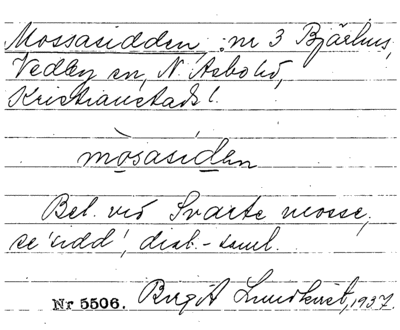 Mossasidden, nr 3 Bjärhus,
Vedby sn, N. Åsbo hd,
Kristianstads l.
mòsasíden
Bel. vid Svarte mosse,
se 'sidd', dial.-saml.
Nr 5506. Birgit Lundkvist, 1937.